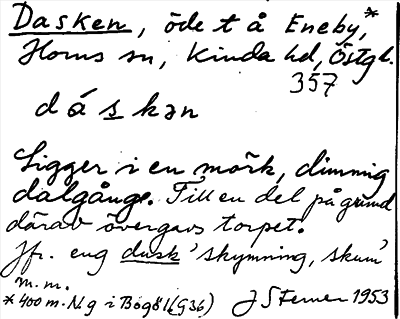 Dasken, öde t å Eneby,*
Horns sn, Kinda hd, Östgl.
357
dáskən
Ligger i en mörk, dimmig
dalgång. Till en del på grund
därav övergavs torpet.
Jfr. eng dusk 'skymning, skum'
m.m.
* 400 m. N g i Bög81(G36) J Sterner 1953